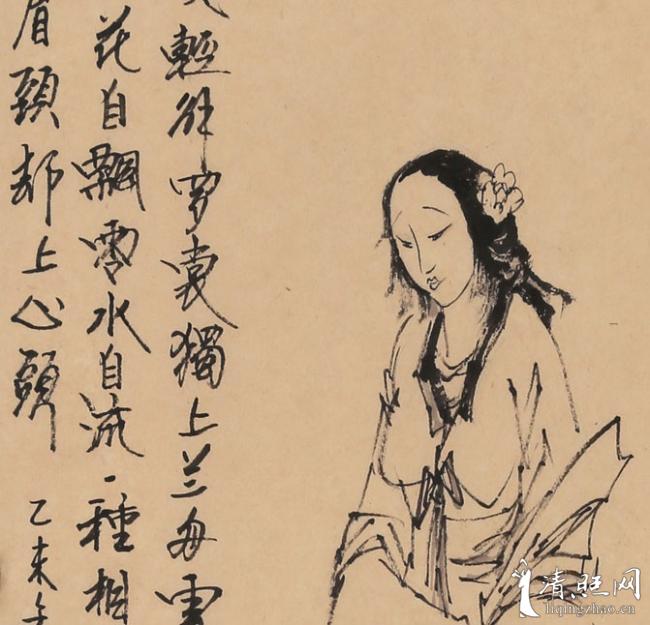 輕解罗裳獨上兰舟雲
花自飄零水自流一種相
眉頭却上心頭
乙未年
清照网
liqingzhao.cn